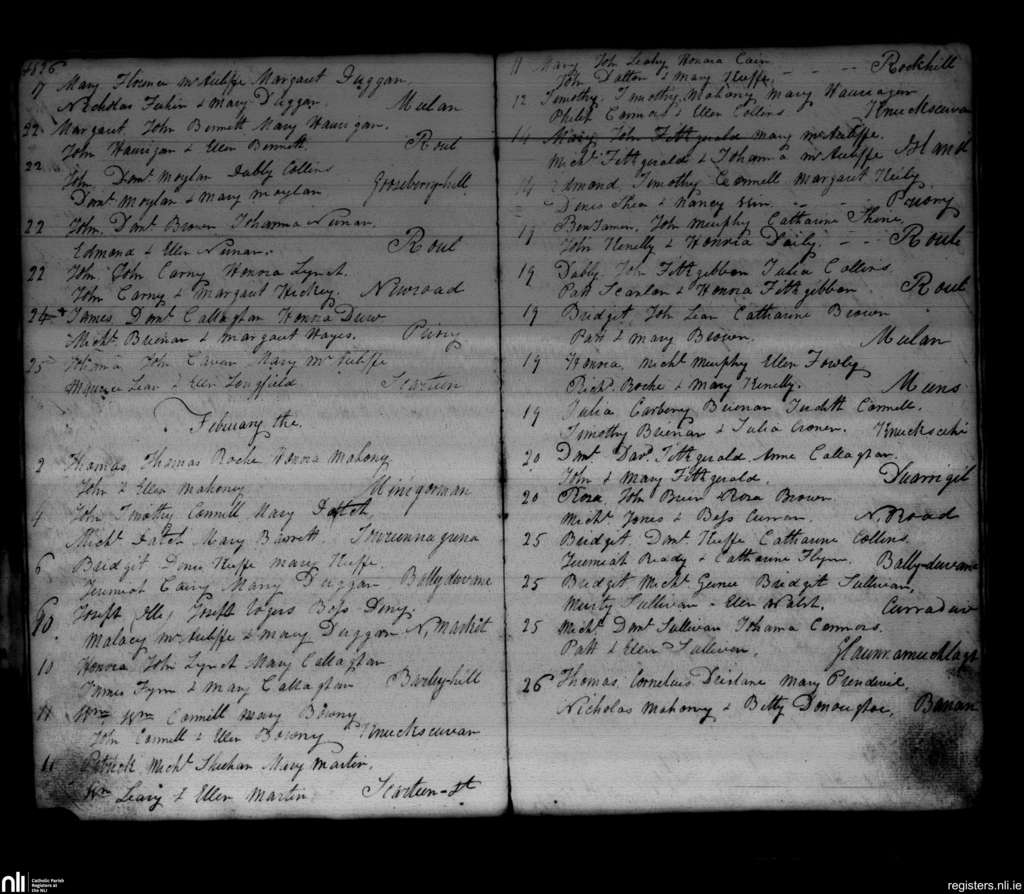 1826
17 Mary Florence McAuliffe Margaret Duggan.
Nicholas & Mary Duggan. Mulan
22 Margaret, John Bennett Mary Haurigan.
John Haurigan & Ellen Bennett. Rout
22 John, Danl Moylan Dably Collins
Danl Moylan & Mary Moylan Gooseberryhill
22 John, Danl Brown Johanna Nunan.
Edmond & Ellen Nunan. Rout
22 John John Carny Honora Lynch.
John Carny & Margaret Hickey. Newroad
24 James Danl Callaghan Honora
Michl Brienan & Margaret Hayes.
25 John Mary McAuliffe
Maurice Lear & Ellen Longfield. Scarteen
February the.
2 Thomas, Thomas Roche Honora Mahony
John & Ellen Mahoney Minegorman
4 John Timothy Connell Mary
Michl Mary Barrett.
6 Bridget Denis Keffe Mary Keffe.
Jeremiah Mary Duggan Ballyduvane
10 Joseph Joseph Rogers Bess
Malacy McAuliffe & Mary Duggan N, Markit
10 Honora John Lynch Mary Callaghan
James Flynn & Mary Callaghan Barleyhill
11 Wm Wm Connell Mary
John Connell & Ellen Knuckscuvan
11 Patrick Michl Sheehan Mary Martin,
Wm Leary & Ellen Martin Scarteen-St
11 Mary John Leahy Honora
John Dalton & Mary Keffe. Rockhill
12 Timothy, Timothy Mahony Mary
Philip Connors & Ellen Collins. Knuckscuvan
14 Mary John Fitzgerald Mary McAuliffe.
Michl Fitzgerald & Johanna McAuliffe Island
14 Edmond, Timothy Connell Margaret
Denis Shea & Nancy Priory
19 Benjamen, John Murphy Catharine Shine,
John Kenelly & Honora Daily. Rout
19 Dably John Fitzgibbon Julia Collins
Patt Scanlan & Honora Fitzgibbon Rout
19 Bridget John Lear Catharine Brown
Patt & Mary Brown. Mulan
19 Honora, Michl Murphy Ellen Fowley
Richd Roche & Mary Kenelly. Muns
19 Julia Carbery Brienan Judith Connell.
Timothy Brienan & Julia Cronen.
20 Danl Davd Fitzgerald Anne Callaghan.
John & Mary Fitzgerald. Duarrigil
20 Rosa, John Rosa Brown.
Michl Jones & Bess Curran. N, Road
25 Bridget Danl Keffe Catharine Collins.
Jeremiah Ready & Catharine Flynn. Ballyduvane
25 Bridget Michl Bridget Sullivan,
Murty Sullivan Ellen Walsh,
25 Michl Danl Sullivan Johanna Connors.
Patt & Ellen Sullivan,
26 Thomas Cornelius Mary
Nicholas Mahony & Betty Donoughoe,
nli
Catholic Parish
Registers at
the NLI
registers.nli.ie